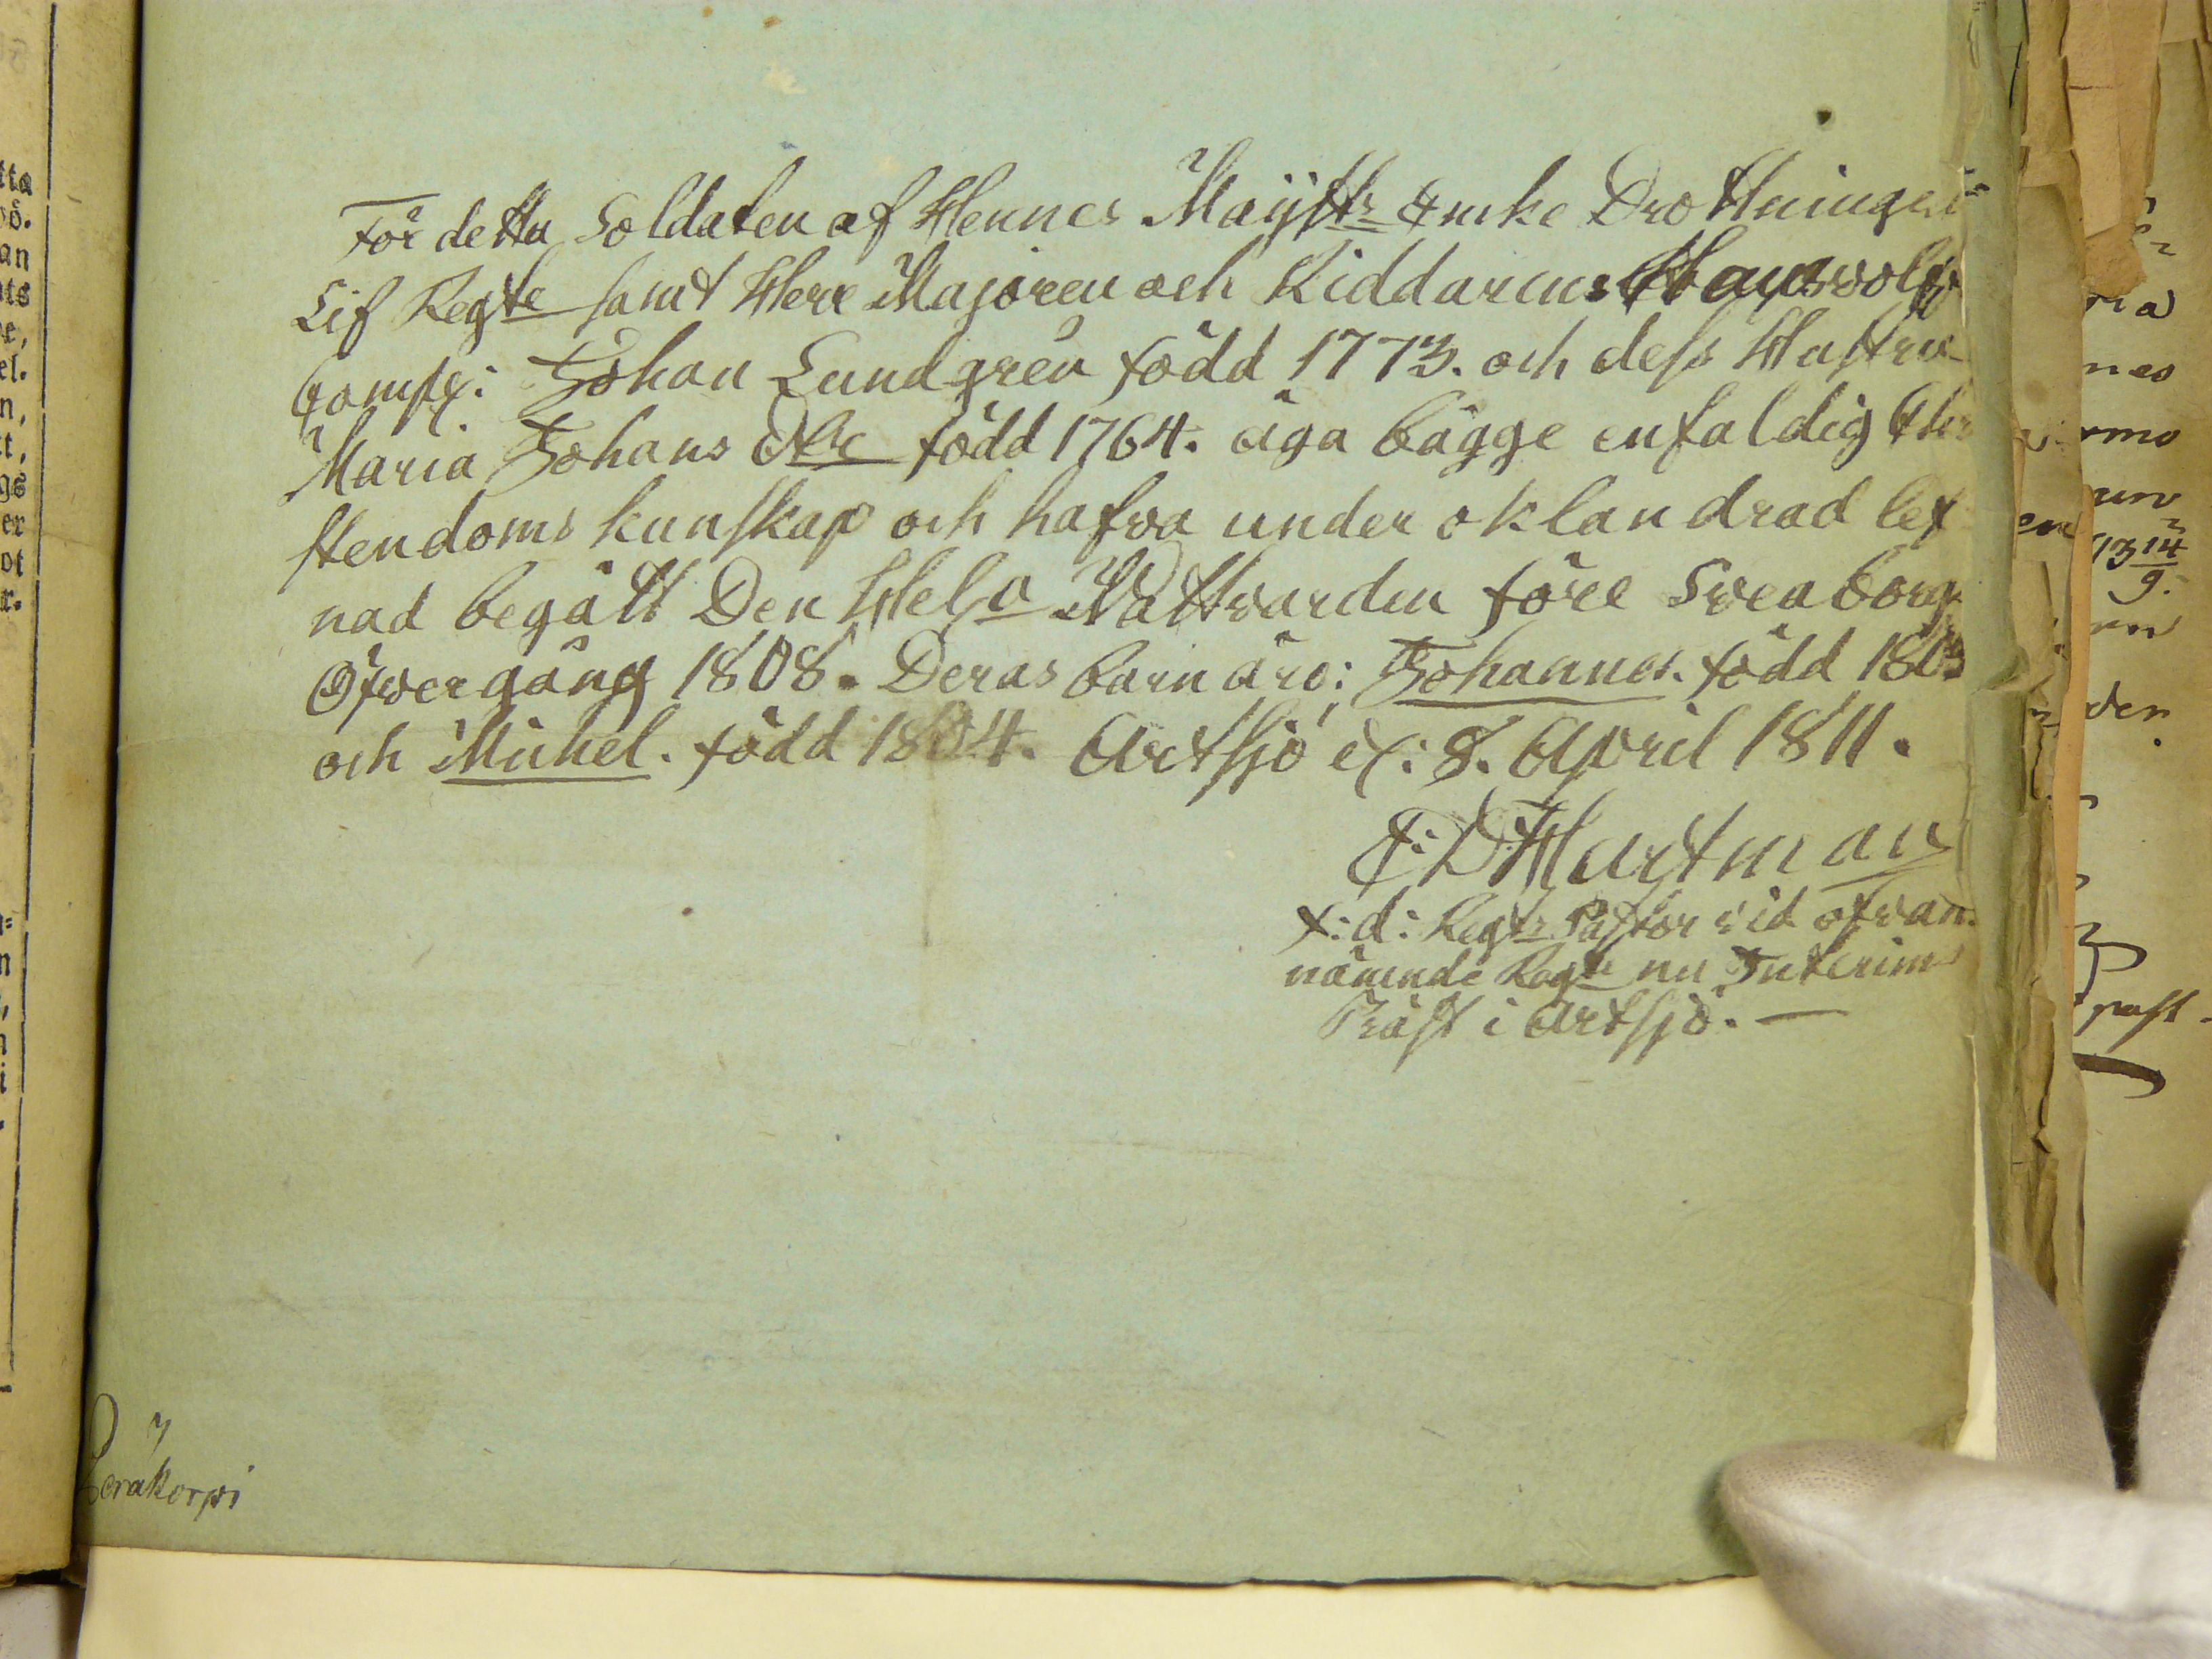 För detta Soldaten af Hennes Maijsts Enke Drottningens
Lif Regte samt Herr Majoren och Riddarens
Comp: Johan Lundgren född 1773. och dess Hustru
Maria Johans Dtr född 1764. äga bägge enfaldig Chri
stendoms kunskap och hafva under oklandrad lef
nad begått Den Hela Nattvarden före Sveaborgs
Öfvergång 1808. Deras barn äro: Johannes. född 1803
och Michel. född 1804. Artsjö d: 8. April 1811.
F: D Hartman
f: d: Regts Pastor vid ofvan
nämnde Regte nu Interims
Präst i Artsjö. —
tta
an
nts
el.
er
ot
nes
13 14
9.
den
past